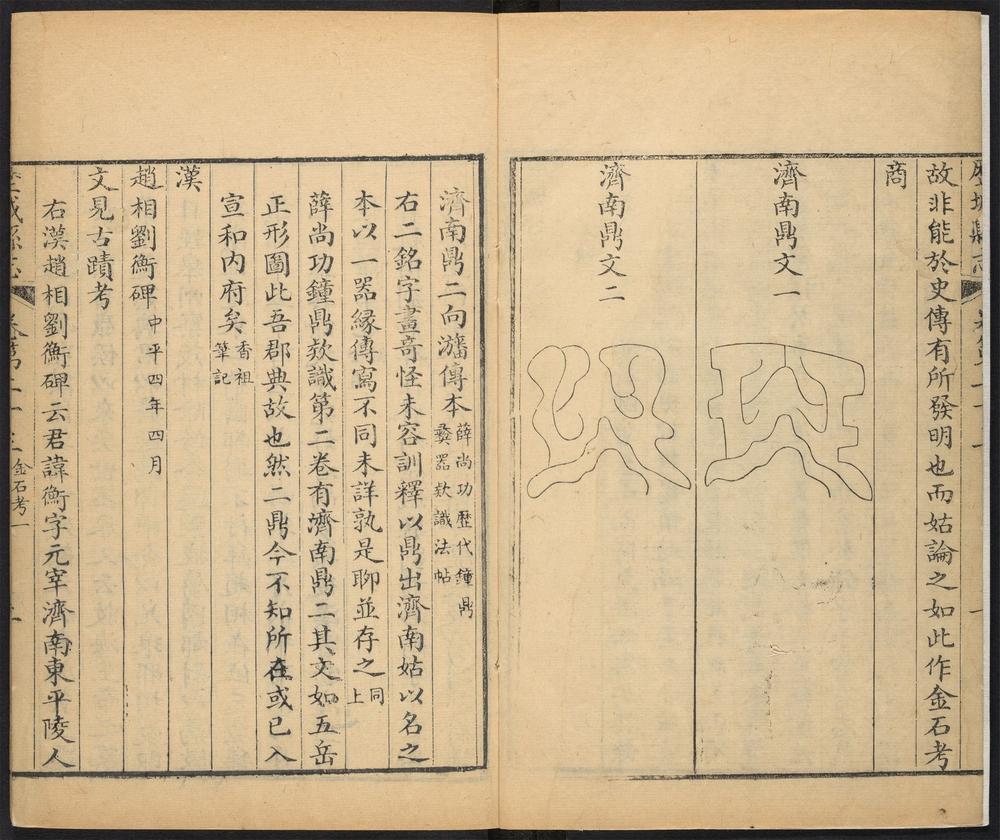 故非能於史傳有所發明也而姑論之如此作金石考
商
濟南鼎文一
濟南鼎文二
濟南鼎二向㶚傳本薛尚功歷代鐘鼎彝器欵識法帖
右二銘字畫奇怪未容訓釋以鼎出濟南姑以名之
本以一器緣傳寫不同未詳孰是聊並存之同上
薛尚功鐘鼎欵識第二卷有濟南鼎二其文如五岳
正形圖此吾郡典故也然二鼎今不知所在或已入
宣和內府矣香祖筆記
漢
趙相劉衡碑中平四年四月
文見古蹟考
右漢趙相劉衡碑云君諱衡字元宰濟南東平陵人
金石考一